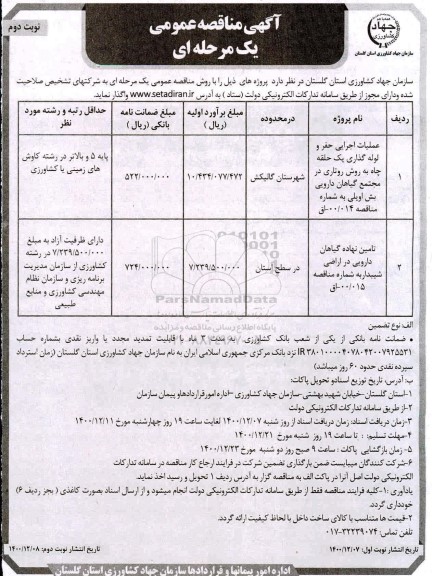 آگهی مناقصه عمومی
یک مرحله ای
نوبت دوم
جهاد کشاورزی
سازمان جهاد کشاورزی استان گلستان
سازمان جهاد کشاورزی استان گلستان در نظر دارد پروژه های ذیل را با روش مناقصه عمومی یک مرحله ای به شرکتهای تشخیص صلاحیت
شده ودارای مجوز از طریق سامانه تدارکات الکترونیکی دولت (ستاد) به آدرس www.setadiran.ir واگذار نماید.
ردیف
نام پروژه
درمحدوده
مبلغ برآورد اولیه (ریال)
مبلغ ضمانت نامه بانکی (ریال)
حداقل رتبه و رشته مورد نظر
۱
عملیات اجرایی حفر و
لوله گذاری یک حلقه
چاه به روش روتاری در
مجتمع گیاهان دارویی
بش اویلی به شماره
مناقصه ۰۰/۰۱۴-اق
شهرستان گالیکش
۱۰/۴۳۴/۰۷۷/۴۷۲
۵۲۲/۰۰۰/۰۰۰
پایه ۵ و بالاتر در رشته کاوش
های زمینی یا کشاورزی
۲
تامین نهاده گیاهان
دارویی در اراضی
شیبداربه شماره مناقصه
۰۰/۰۱۵-اق
در سطح استان
۷/۲۳۹/۵۰۰/۰۰۰
۷۲۴/۰۰۰/۰۰۰
دارای ظرفیت آزاد به مبلغ
۷/۲۳۹/۵۰۰/۰۰۰ در رشته
کشاورزی از سازمان مدیریت
برنامه ریزی و سازمان نظام
مهندسی کشاورزی و منابع
طبیعی
ParsNamadData
پایگاه اطلاع رسانی مناقصه و مزایده
الف نوع تضمین
• ضمانت نامه بانکی از یکی از شعب بانک کشاورزی به مدت ۳ ماه با قابلیت تمدید مجدد یا واریز نقدی بشماره حساب
نزد بانک مرکزی جمهوری اسلامی ایران به نام سازمان جهاد کشاورزی استان گلستان (زمان استرداد
سپرده نقدی حدود ۶۰ روز میباشد)
ب: آدرس، تاریخ توزیع اسنادو تحویل پاکات:
۱-استان گلستان-خیابان شهید بهشتی-سازمان جهاد کشاورزی –اداره امورقراردادهاو پیمان سازمان
۲-از طریق سامانه تدارکات الکترونیکی دولت
۳-زمان دریافت اسناد: زمان دریافت اسناد از روز شنبه ۱۴۰۰/۱۲/۰۷ لغایت ساعت ۱۹ روز چهارشنبه مورخ ۱۴۰۰/۱۲/۱۱
۴-مهلت تسلیم: تا ساعت ۱۹ روز شنبه مورخ ۱۴۰۰/۱۲/۲۱
۵- زمان بازگشایی پاکات: ساعت ۹ صبح روز دو شنبه مورخ ۱۴۰۰/۱۲/۲۳
۶-شرکت کنندگان میبایست ضمن بارگذاری تضمین شرکت در فرایند ارجاع کار مناقصه در سامانه تدارکات
الکترونیکی دولت اصل آنرا در پاکت الف مناقصه گزار به آدرس ردیف ۱ تحویل و رسید اخذ نماید.
یادآوری: ۱-کلیه فرایند مناقصه فقط از طریق سامانه تدارکات الکترونیکی دولت انجام میشود و از ارسال اسناد بصورت کاغذی (بجز ردیف ۶)
خودداری گردد.
۲-قیمت ها متناسب با کالای ساخت داخل با لحاظ کیفیت ارائه گردد.
تلفن تماس: ۳۲۲۳۹۰۷۴-۰۱۷
تاریخ انتشار نوبت اول: ۱۴۰۰/۱۲/۰۷
تاریخ انتشار نوبت دوم: ۱۴۰۰/۱۲/۰۸
اداره امور پیمانها و قراردادها سازمان جهاد کشاورزی استان گلستان